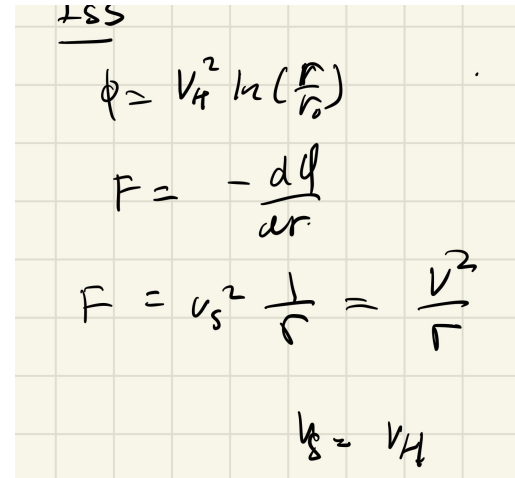 ISS
φ = V_H² ln(r/r₀)
F = - dφ/dr
F = v_s² 1/r = V²/r
V_s = V_H